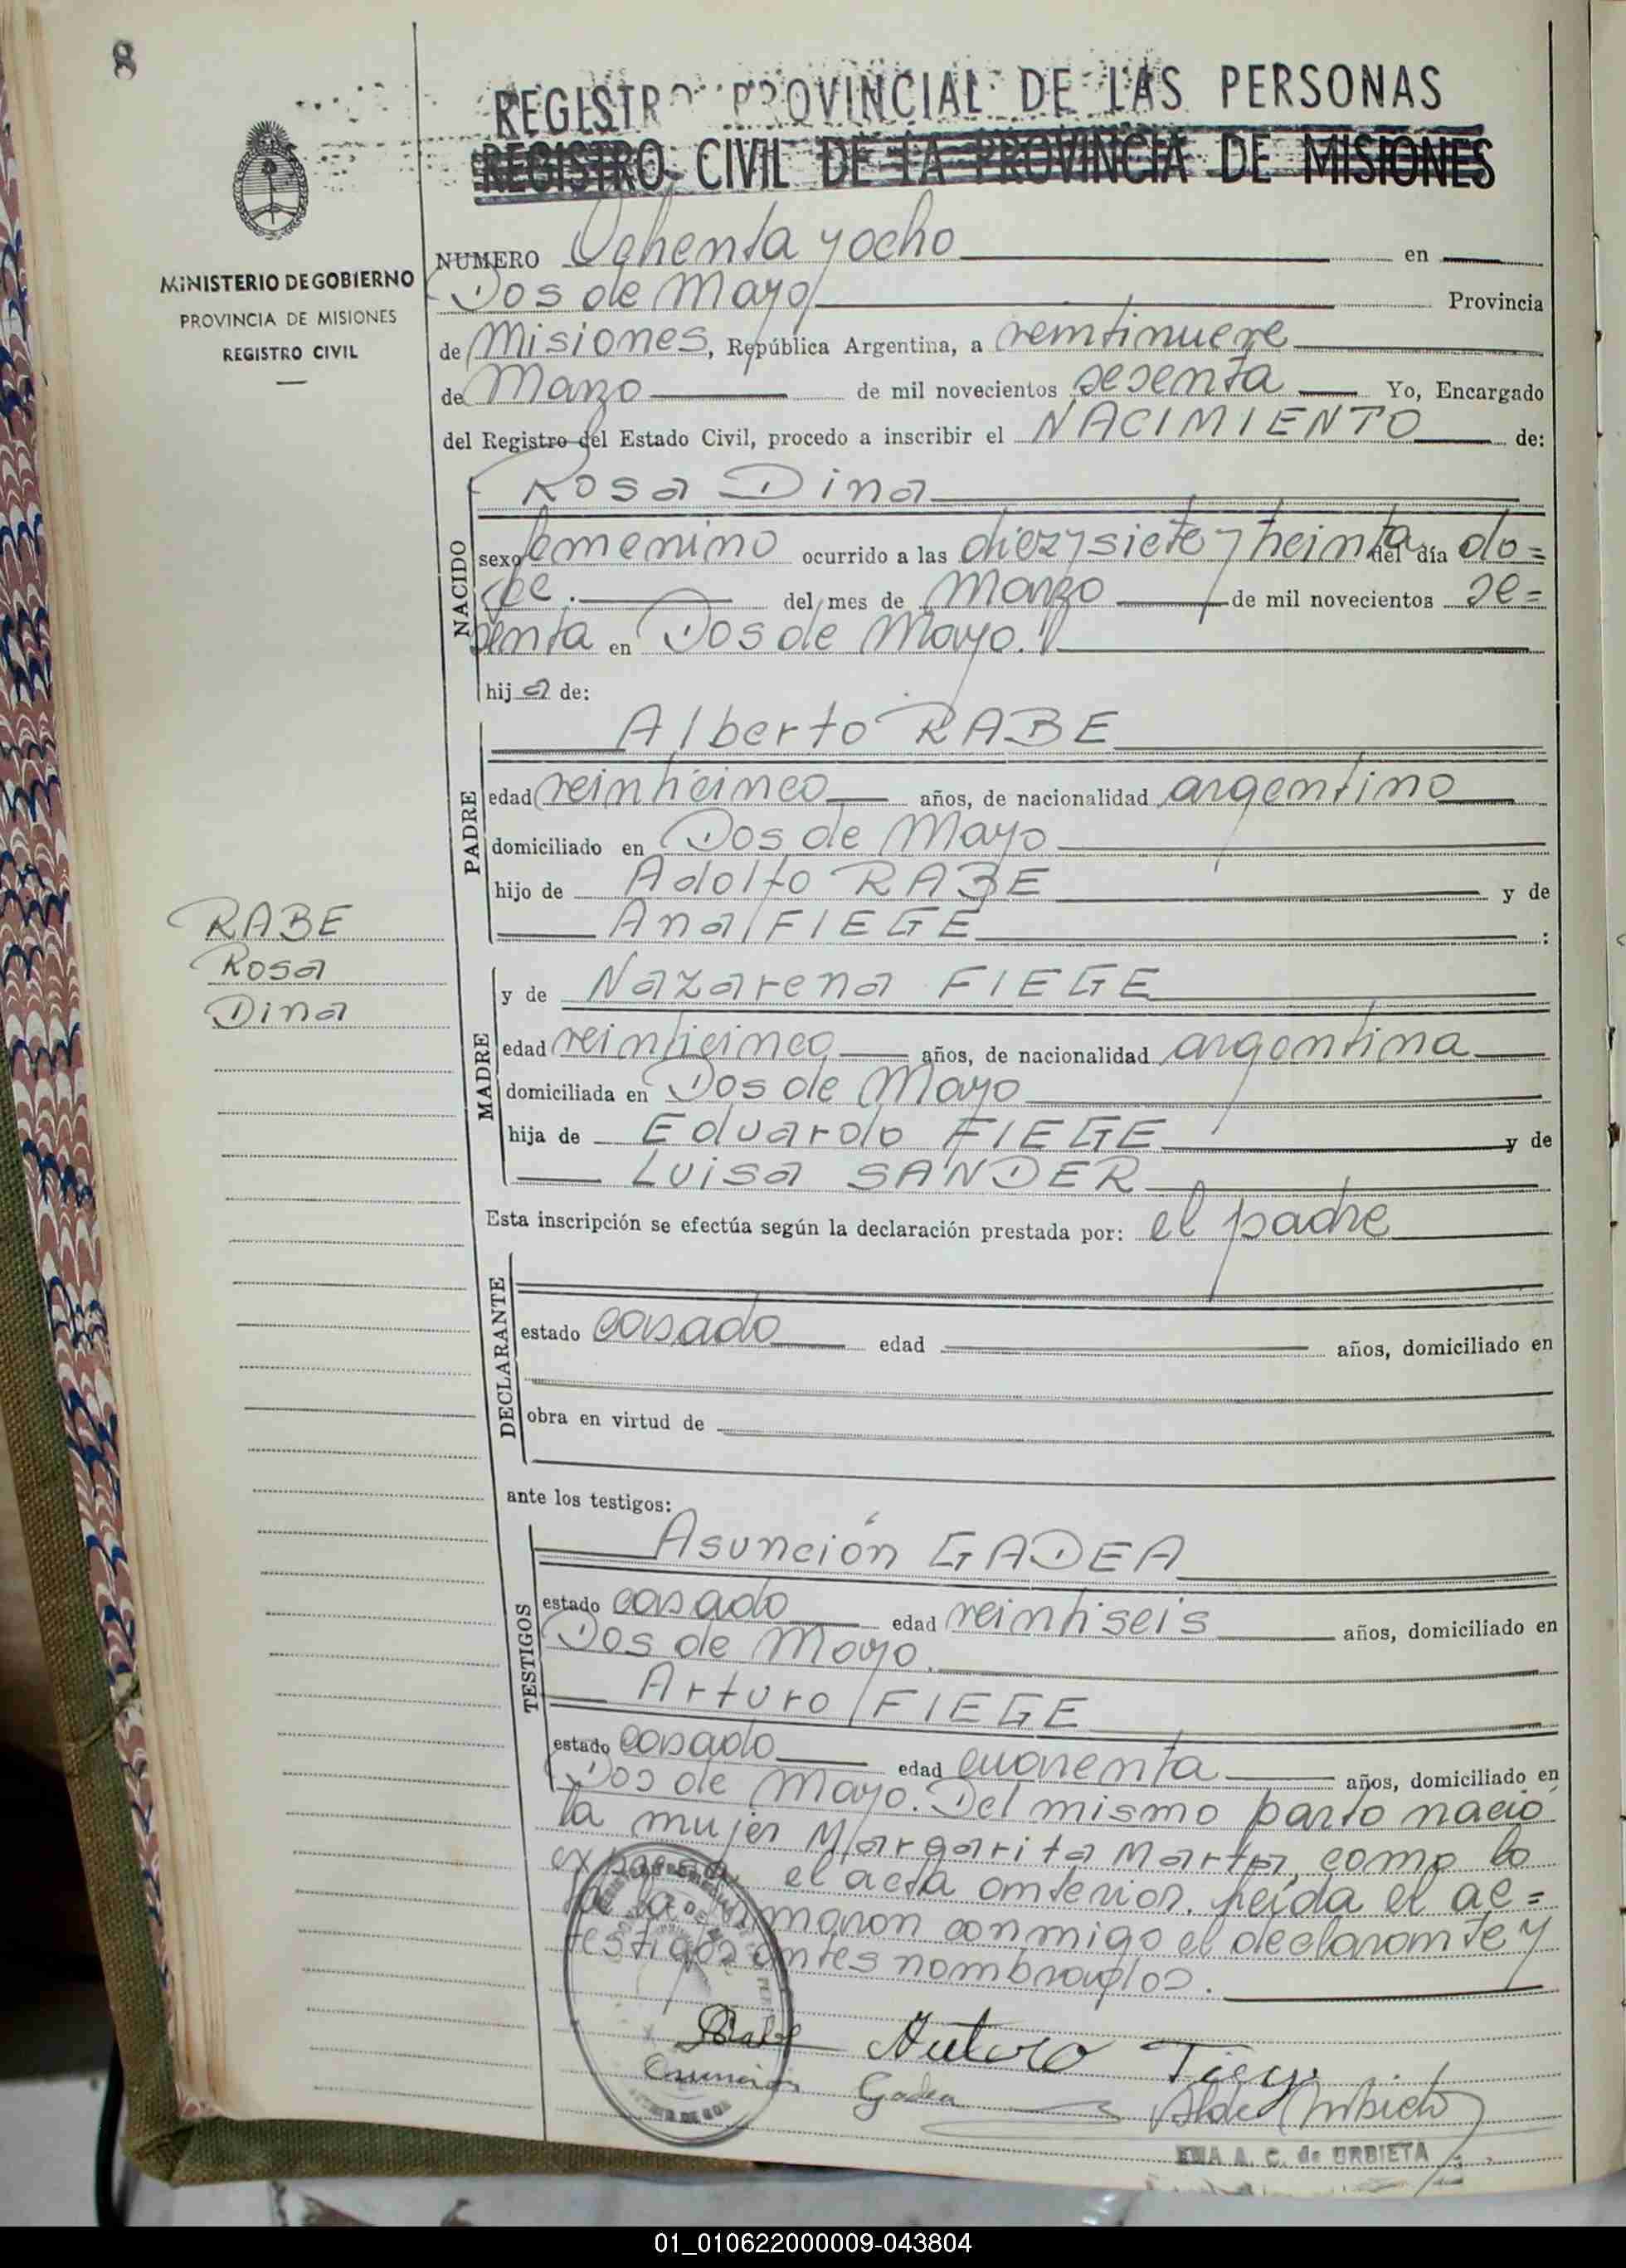 8
REGISTRO PROVINCIAL DE LAS PERSONAS
REGISTRO CIVIL DE LA PROVINCIA DE MISIONES
MINISTERIO DE GOBIERNO
PROVINCIA DE MISIONES
REGISTRO CIVIL
NUMERO Ochenta y ocho en
Dos de Mayo Provincia
de Misiones, República Argentina, a veintinueve
de Marzo de mil novecientos sesenta Yo, Encargado
del Registro del Estado Civil, procedo a inscribir el NACIMIENTO de:
NACIDO
Rosa Dina
sexo femenino ocurrido a las diez y siete y treinta del día do=
ce. del mes de Marzo de mil novecientos se=
senta en Dos de Mayo.
hija de:
PADRE
Alberto RABE
edad veinticinco años, de nacionalidad argentino
domiciliado en Dos de Mayo
hijo de Adolfo RABE y de
Ana FIEGE :
RABE
Rosa
Dina
MADRE
y de Nazarena FIEGE
edad veinticinco años, de nacionalidad argentina
domiciliada en Dos de Mayo
hija de Eduardo FIEGE y de
Luisa SANDER
Esta inscripción se efectúa según la declaración prestada por: el padre
DECLARANTE
estado casado edad años, domiciliado en
obra en virtud de
ante los testigos:
TESTIGOS
Asunción GADEA
estado casado edad veintiseis años, domiciliado en
Dos de Mayo.
Arturo FIEGE
estado casado edad cuarenta años, domiciliado en
Dos de Mayo. Del mismo parto nació
la mujer Margarita Marta, como lo
expresa el acta anterior. Leída el ac=
ta la firmaron conmigo el declarante y
testigos antes nombrados.
Rabe Arturo Fiege
Asunción Gadea
EMA A. C. de URBIETA
01_010622000009-043804